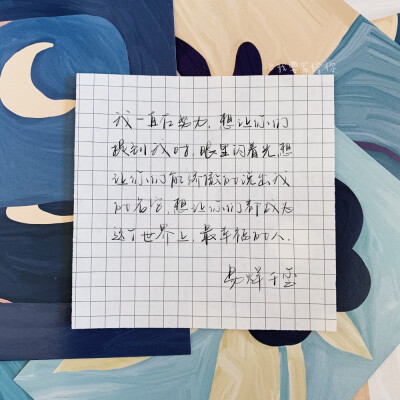 我要写给你
我一直在努力，想让你们
提到我时，眼里闪着光，想
让你们能骄傲的说出我
的名字，想让你们都成为
这个世界上，最幸福的人.
易烊千玺